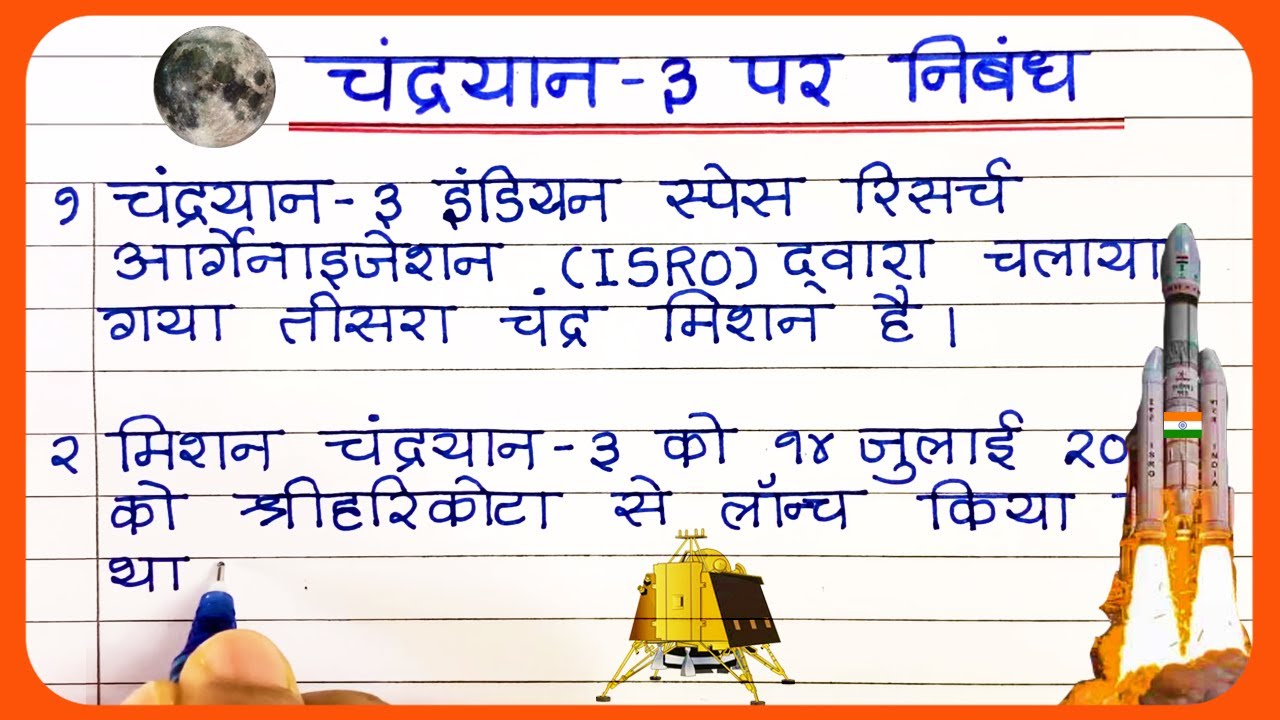 चंद्रयान-३ पर निबंध
१ चंद्रयान-३ इंडियन स्पेस रिसर्च
आर्गेनाइजेशन (ISRO) द्वारा चलाया
गया तीसरा चंद्र मिशन है।
२ मिशन चंद्रयान-३ को १४ जुलाई २०
को श्रीहरिकोटा से लॉन्च किया
था
ISRO
INDIA